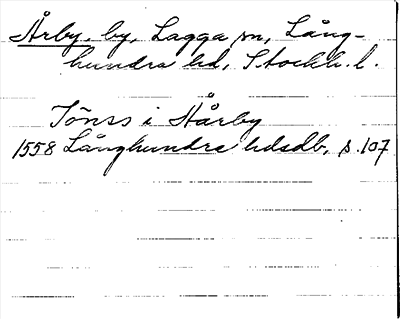 Årby, by, Lagga sn, Lång-
hundra hd, Stockh. l.
Jönss i Hårby
1558 Långhundra hdsdb, s. 107